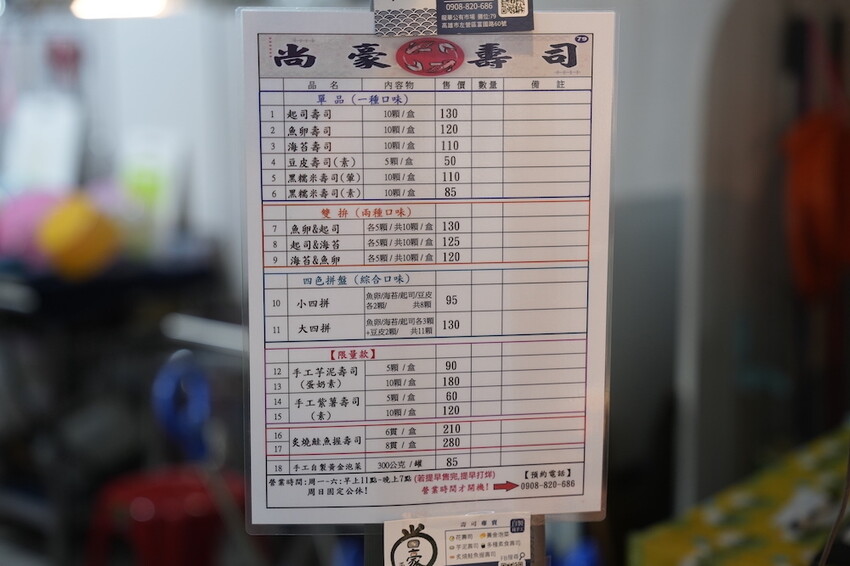 0908-820-686
龍華公有市場 攤位:79
高雄市左營區富國路60號
尚豪壽司 79
品名 內容物 售價 數量 備註
單品(一種口味)
1 起司壽司 10顆/盒 130
2 魚卵壽司 10顆/盒 120
3 海苔壽司 10顆/盒 110
4 豆皮壽司(素) 5顆/盒 50
5 黑糯米壽司(葷) 10顆/盒 110
6 黑糯米壽司(素) 10顆/盒 85
雙拚(兩種口味)
7 魚卵&起司 各5顆/共10顆/盒 130
8 起司&海苔 各5顆/共10顆/盒 125
9 海苔&魚卵 各5顆/共10顆/盒 120
四色拼盤(綜合口味)
10 小四拼 魚卵/海苔/起司/豆皮 95
各2顆/ 共8顆
11 大四拼 魚卵/海苔/起司各3顆 130
+豆皮2顆/ 共11顆
【限量款】
12 手工芋泥壽司 5顆/盒 90
13 (蛋奶素) 10顆/盒 180
14 手工紫薯壽司 5顆/盒 60
15 (素) 10顆/盒 120
16 炙燒鮭魚握壽司 6貫/盒 210
17 8貫/盒 280
18 手工自製黃金泡菜 300公克/罐 85
營業時間:周一-六:早上11點-晚上7點(若提早售完,提早打烊) 【預約電話】
周日固定公休! 營業時間才開機! 0908-820-686
尚豪
壽司專賣
花壽司 黃金泡菜
芋泥壽司 多種素食壽司
炙燒鮭魚握壽司